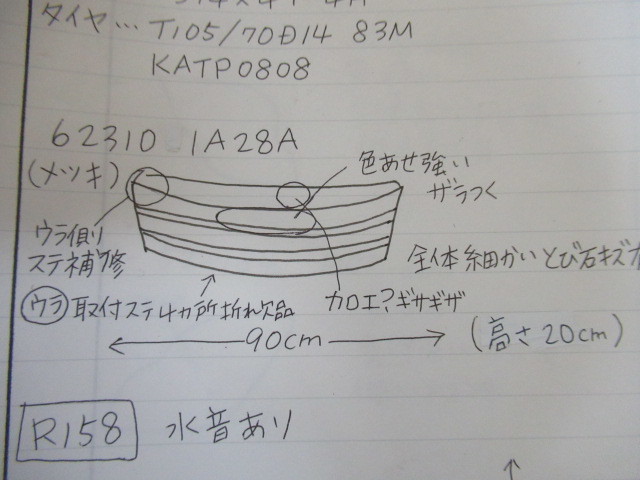 タイヤ… T105/70D14 83M
KATP0808
62310 1A28A
(メッキ)
色あせ強い
ザラつく
ウラ側
ステ補修
全体細かいとび石キズ
ウラ 取付ステ4カ所折れ欠品
加工?ギザギザ
90cm
(高さ20cm)
R158 水音あり